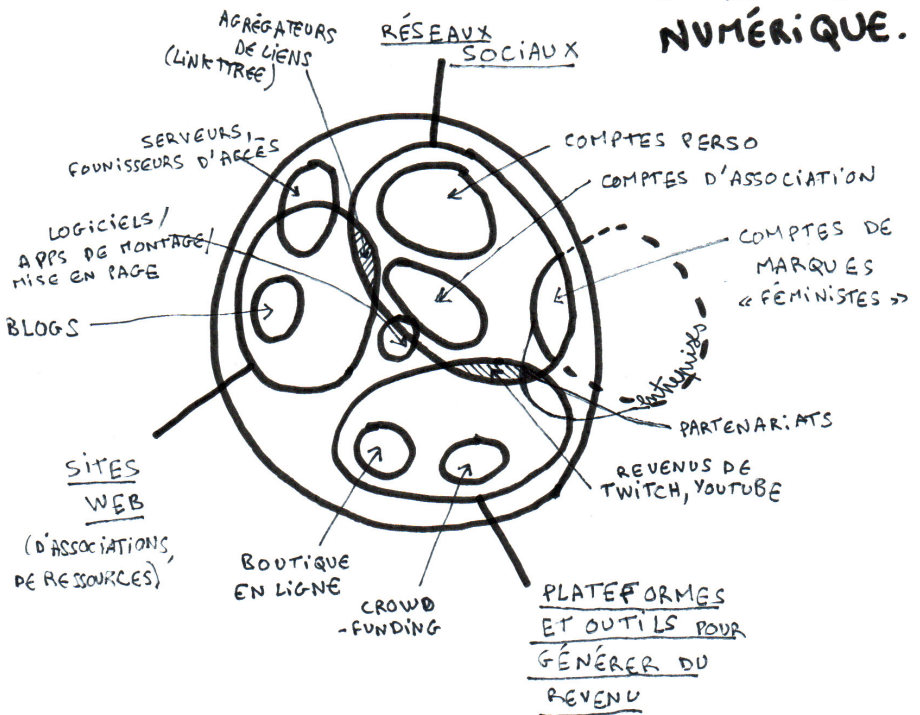 NUMÉRIQUE.
AGRÉGATEURS
DE LIENS
(LINKTREE)
RÉSEAUX
SOCIAUX
SERVEURS,
FOUNISSEURS D'ACCÈS
COMPTES PERSO
COMPTES D'ASSOCIATION
LOGICIELS/
APPS DE MONTAGE/
MISE EN PAGE
COMPTES DE
MARQUES
« FÉMINISTES »
BLOGS
entreprises
PARTENARIATS
REVENUS DE
TWITCH, YOUTUBE
SITES
WEB
(D'ASSOCIATIONS,
DE RESSOURCES)
BOUTIQUE
EN LIGNE
CROWD
-FUNDING
PLATEFORMES
ET OUTILS POUR
GÉNÉRER DU
REVENU